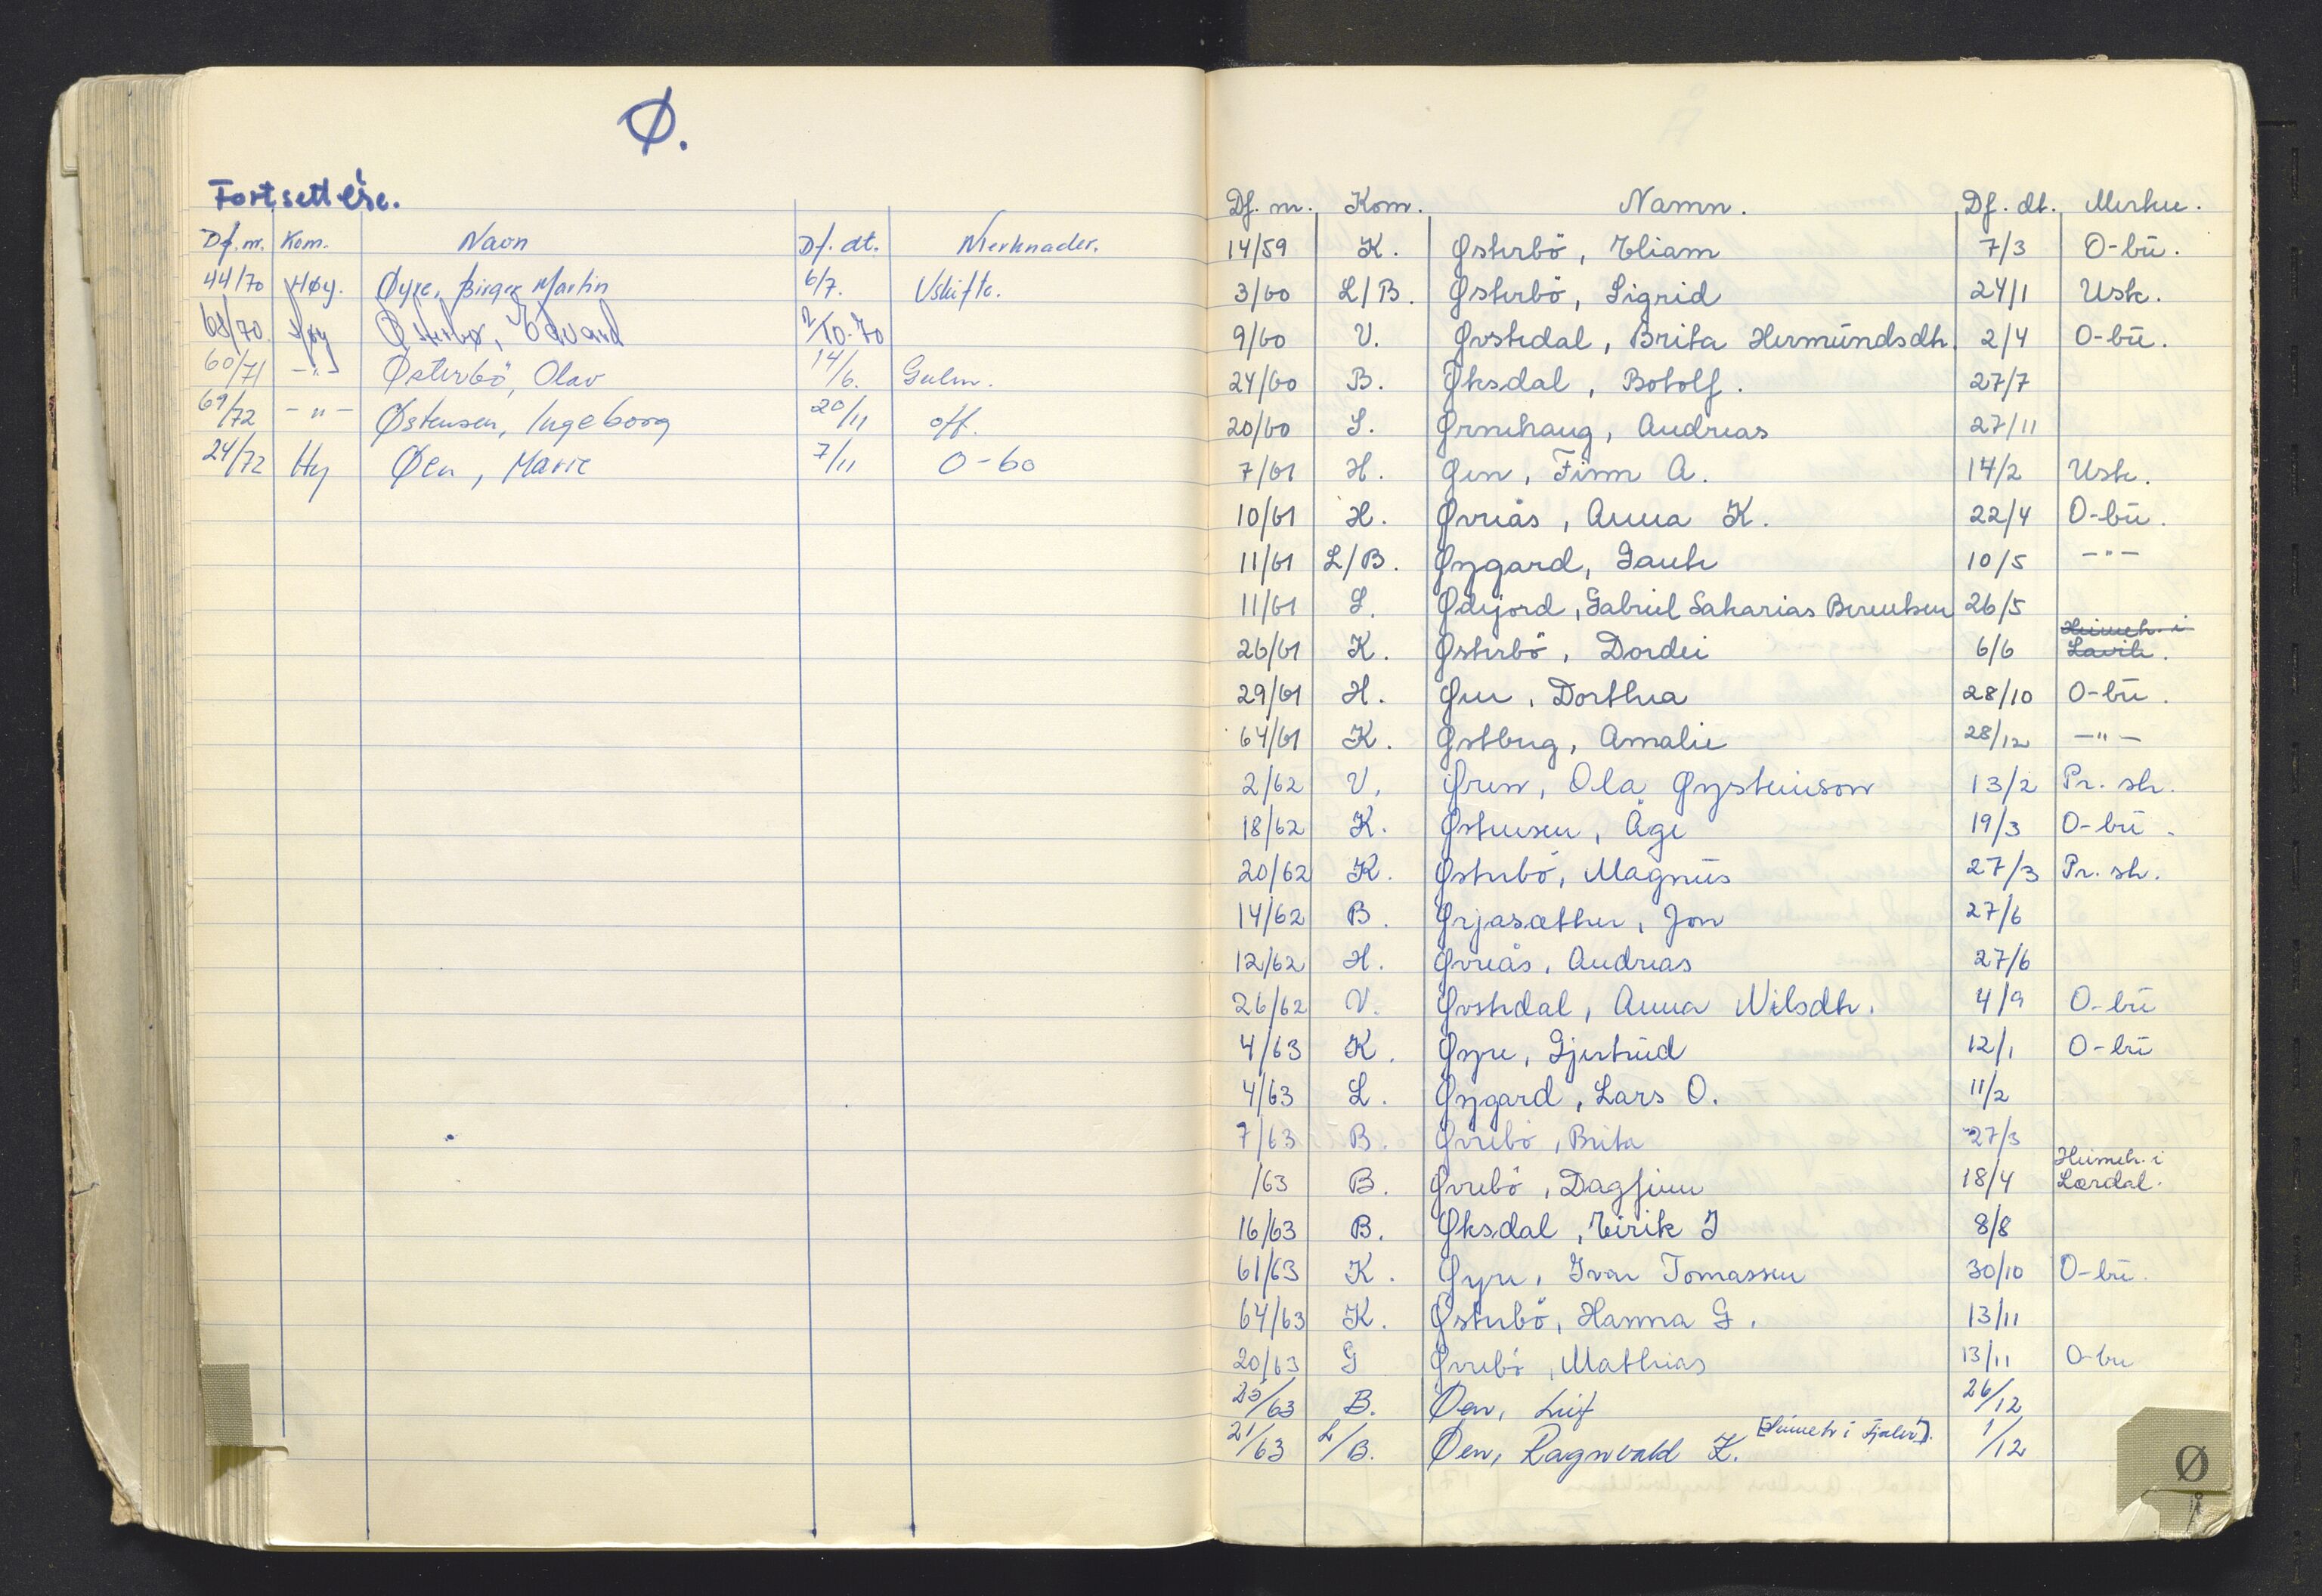 Ø.
Fortsettelse.
Df. nr. Kom. Navn Df. dt. Merknader.
44/70 Høy. Øyre, Birger Martin 6/7. Uskifte.
68/70 Høy Østerbø, Edvard 2/10-70
60/71 -"- Østerbö, Olav 14/6. Gulen.
69/72 -"- Østensen, Ingeborg 20/11 off.
24/72 Hy Øen, Marie 7/11 O-bo
Df. nr. Kom. Namn. Df. dt. Merkn.
14/59 K. Østerbö, Eliam 7/3 O-bu.
3/60 L/B. Østerbö, Sigrid 24/1 Usk.
9/60 V. Øvstedal, Brita Hermundsdtr. 2/4 O-bu.
24/60 B. Øksdal, Botolf. 27/7
20/60 S. Ørnehaug, Andreas 27/11
7/61 H. Øen, Finn A. 14/2 Usk.
10/61 H. Øvreås, Anna K. 22/4 O-bu.
11/61 L/B. Øygard, Gaute 10/5 -"-
11/61 S. Ødejord, Gabriel Sakarias Berentsen 26/5
26/61 K. Østerbö, Dordei 6/6 Heimeh. i Lavik.
29/61 H. Øen, Dorthea 28/10 O-bu.
64/61 K. Østberg, Amalie 28/12 -"-
2/62 V. Øren, Ola Øysteinson 13/2 Pr. sk.
18/62 K. Østensen, Åge 19/3 O-bu.
20/62 K. Østerbö, Magnus 27/3 Pr. sk.
14/62 B. Ørjasæther, Jon 27/6
12/62 H. Øvreås, Andreas 27/6
26/62 V. Øvstedal, Anna Nilsdtr. 4/9 O-bu
4/63 K. Øyre, Gjertrud 12/1 O-bu
4/63 L. Øygard, Lars O. 11/2
7/63 B. Øvrebö, Brita 27/3
/63 B. Øvrebö, Dagfinn 18/4 Heimeh. i Lærdal.
16/63 B. Øksdal, Eirik J 8/8
61/63 K. Øyre, Ivar Tomassen 30/10 O-bu.
64/63 K. Østerbö, Hanna G. 13/11
20/63 G Øvrebö, Mathias 13/11 O-bu
25/63 B. Øen, Leif 26/12
21/63 L/B. Øen, Ragnvald K. [Heimeh i Fjaler]. 1/12
Ø